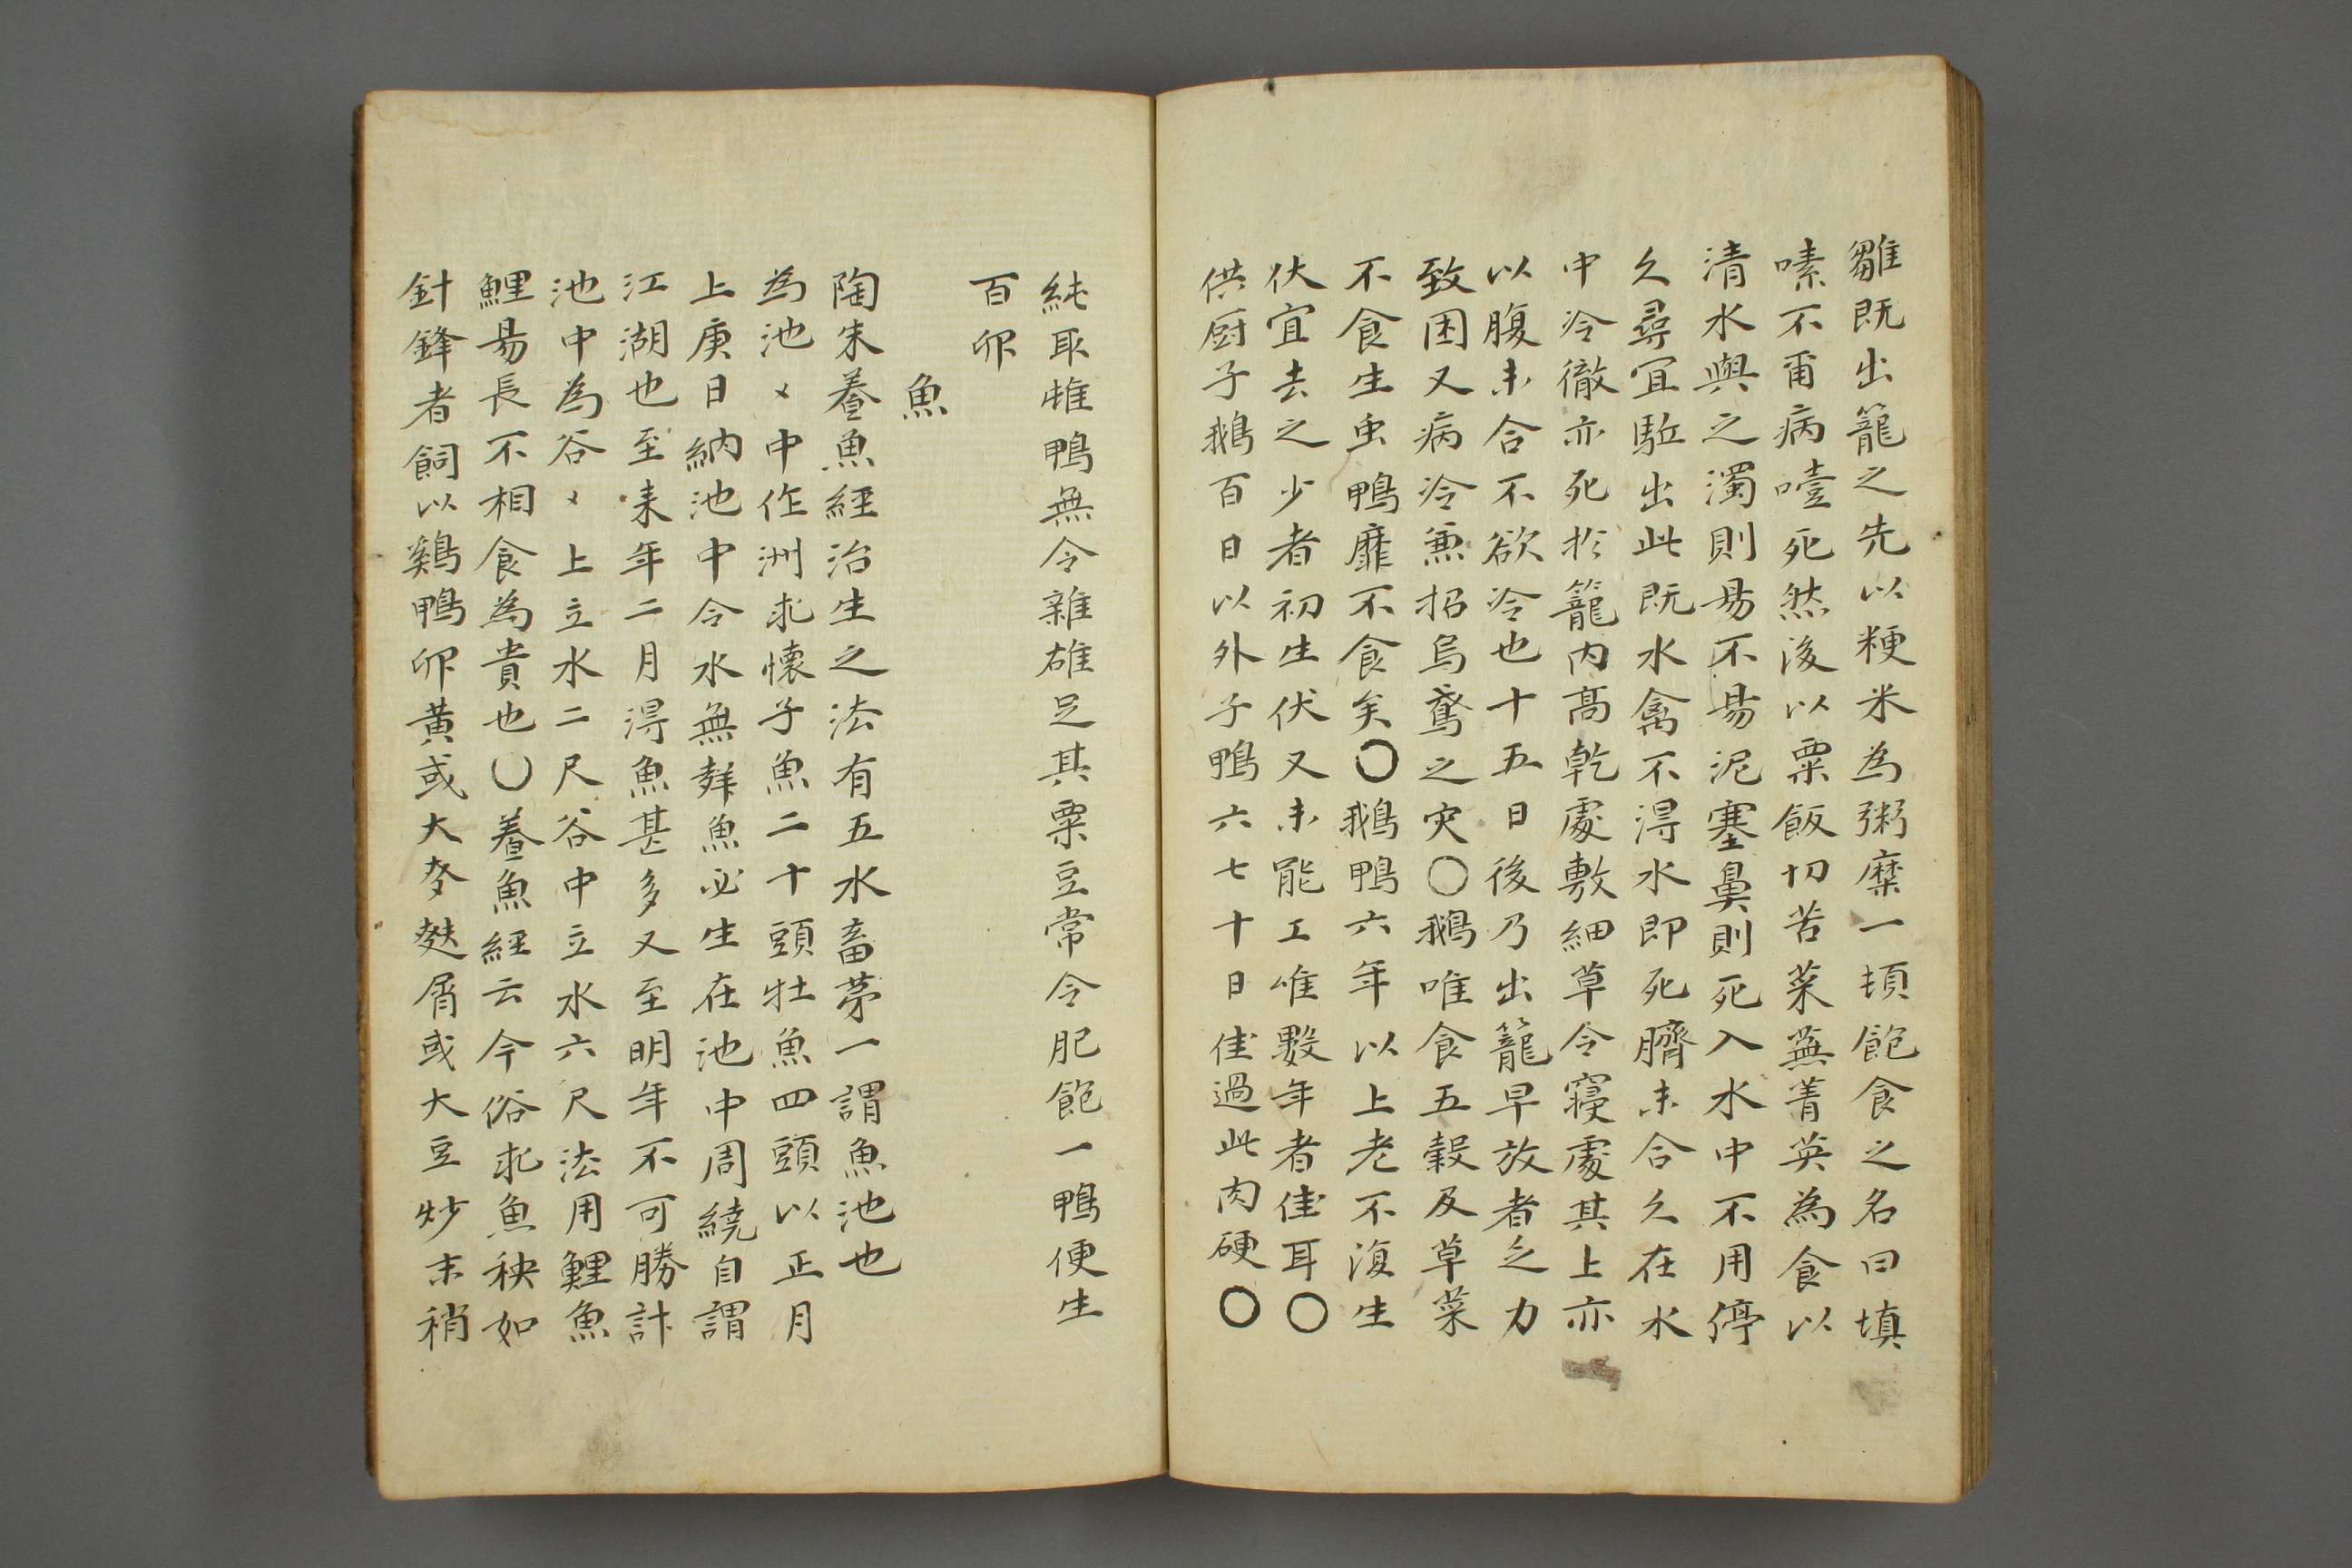 雛既出籠之先以粳米為粥糜一頓飽食之名曰填
嗉不甯病噎死然後以粟飯切苦菜蕪菁英為食以
清水與之濁則易不易泥塞鼻則死入水中不用停
久尋宜駈出此既水禽不得水即死臍未合久在水
中冷徹亦死於籠内高乾處敷細草令寝處其上亦
以腹未合不欲冷也十五日後乃出籠早放者乏力
致困又病冷兼招烏鳶之灾○鵝唯食五穀及草菜
不食生虫鴨靡不食矣○鵝鴨六年以上老不復生
伏宜去之少者初生伏又未能工唯數年者佳耳○
供厨子鵝百日以外子鴨六七十日佳過此肉硬○
純取雌鴨無令雜雄足其粟豆常令肥飽一鴨便生
百卵
魚
陶朱養魚經治生之法有五水畜苐一謂魚池也
為池〻中作洲求懐子魚二十頭牡魚四頭以正月
上庚日納池中令水無觧魚必生在池中周繞自謂
江湖也至来年二月得魚甚多又至明年不可勝計
池中為谷〻上立水二尺谷中立水六尺法用鯉魚
鯉易長不相食為貴也○養魚經云今俗求魚秧如
針鋒者飼以鷄鴨卵黄或大麥麩屑或大豆炒末稍